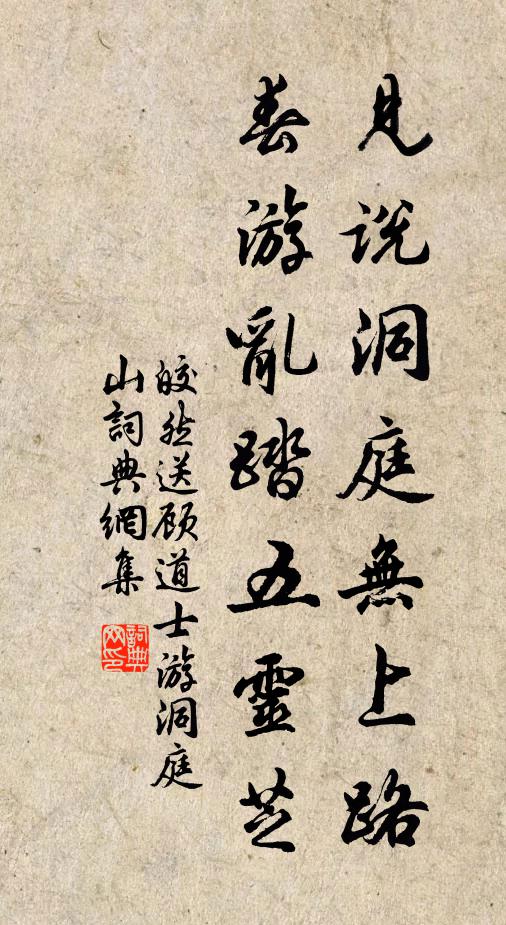 見説洞庭無上路
春游亂踏五靈芝
皎然送顾道士游洞庭
山詞典網集
詞典网印